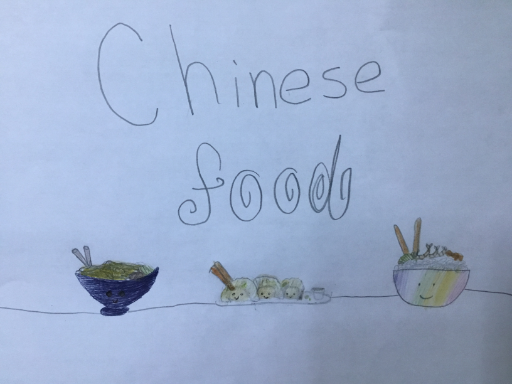 Chinese
food